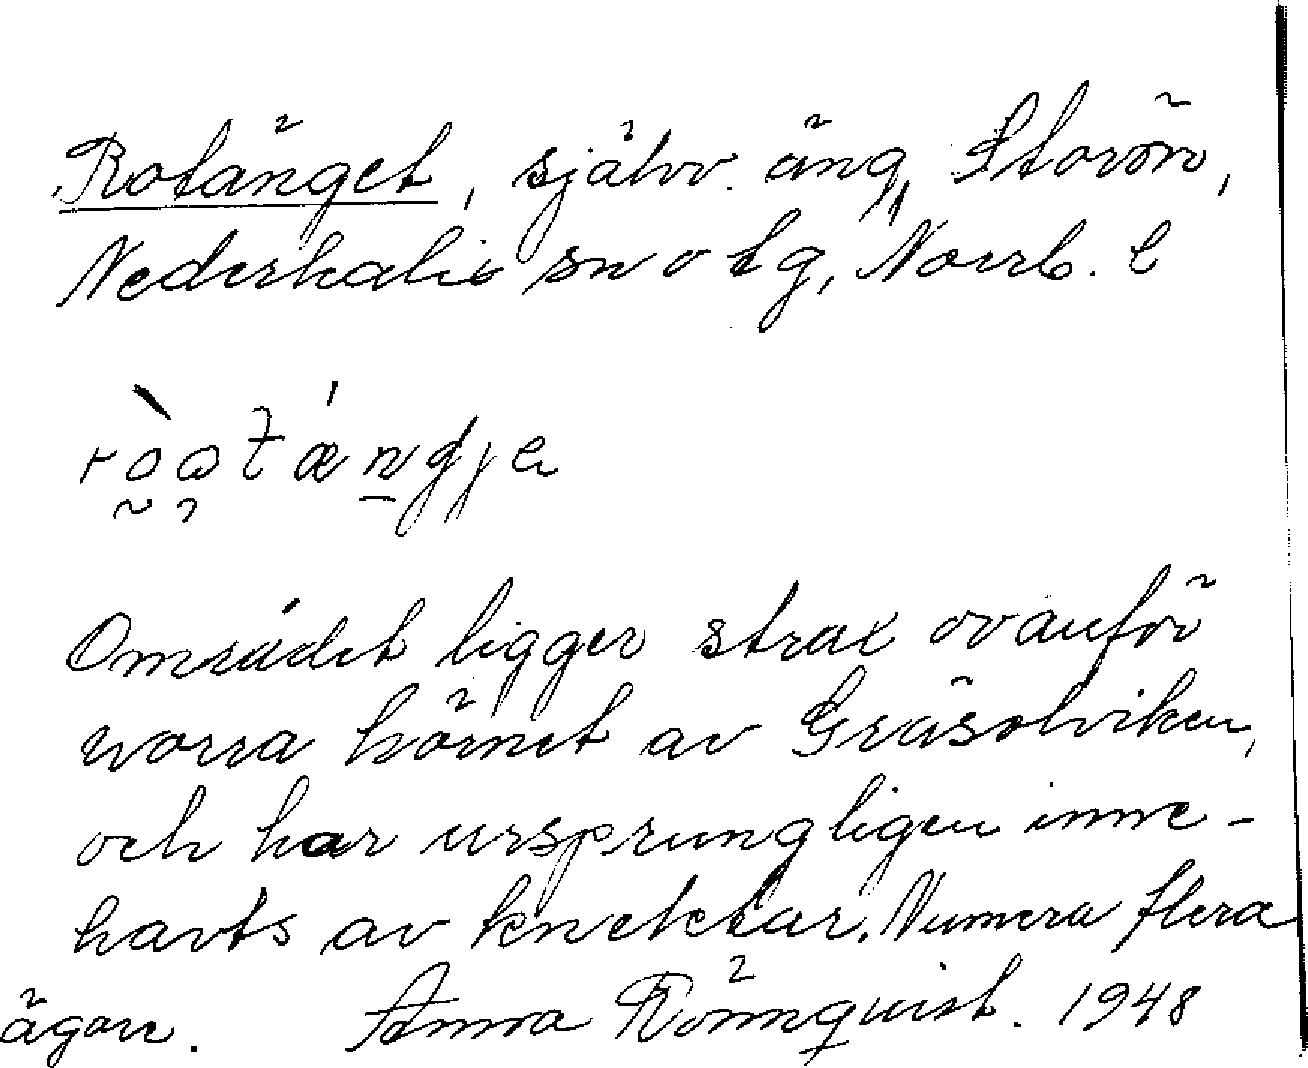 Rotänget, självv. äng, Storön,
Nederkalix sn o tg, Norrb. l
Området ligger strax ovanför
norra hörnet av Gräsolviken,
och har ursprungligen inne-
havts av knektar. Numera flera
ägare. Anna Rönnquist. 1948